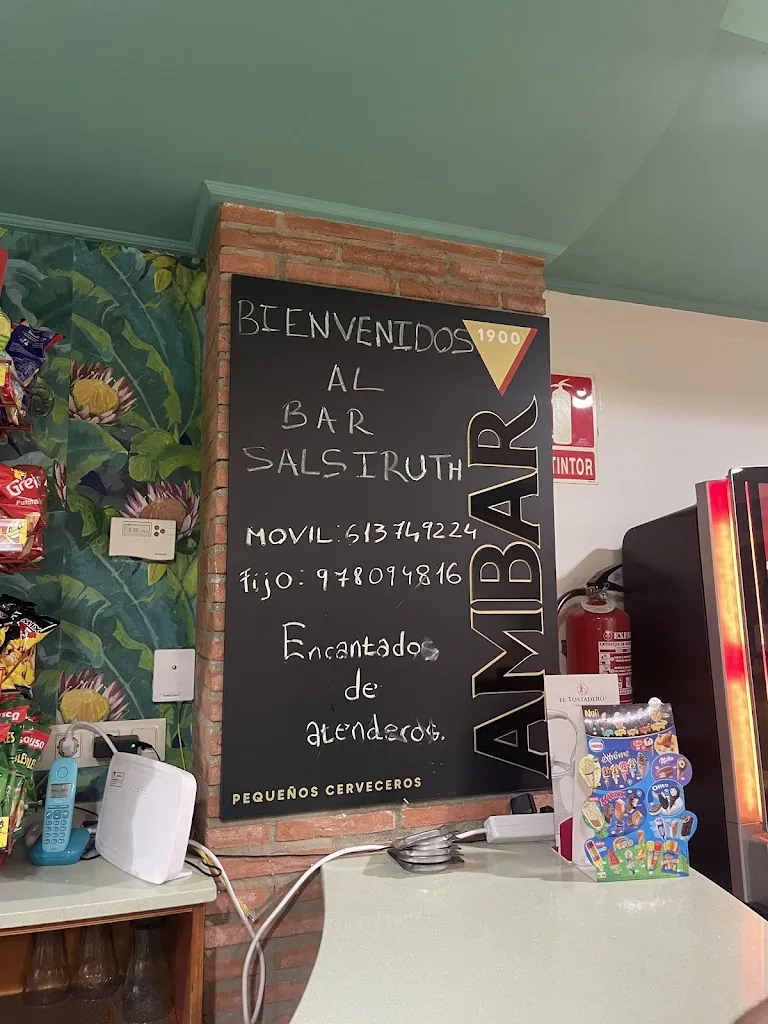 BIENVENIDOS
AL
BAR
SALSIRUTH
MOVIL: 613749224
Fijo: 978094816
Encantados
de
atenderos.
1900
AMBAR
PEQUEÑOS CERVECEROS
TINTOR
EL TOSTADERO
Extrême
Milka
OREO